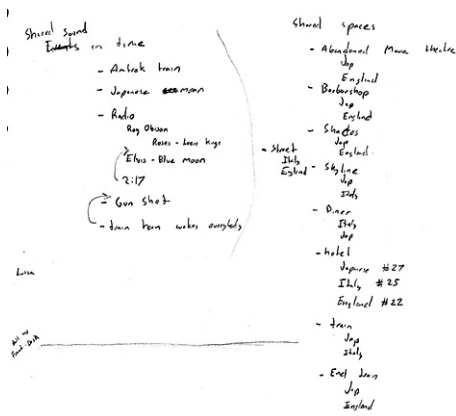 Shared sound
Events in time
- Amtrak train
- Japanese moon
- Radio
Roy Obison
Roses -
Elvis - Blue moon
2:17
- Gun shot
- train horn wakes everybody
Luisa
Front-Desk
Shared spaces
- Abandoned Movie theatre
Jap
England
- Barbershop
Jap
England
- Shades
Jap
England
- Street
Italy
England
- Skyline
Jap
Italy
- Diner
Italy
Jap
- hotel
Japanse #27
Italy #25
England #22
- train
Jap
Italy
- End train
Jap
England